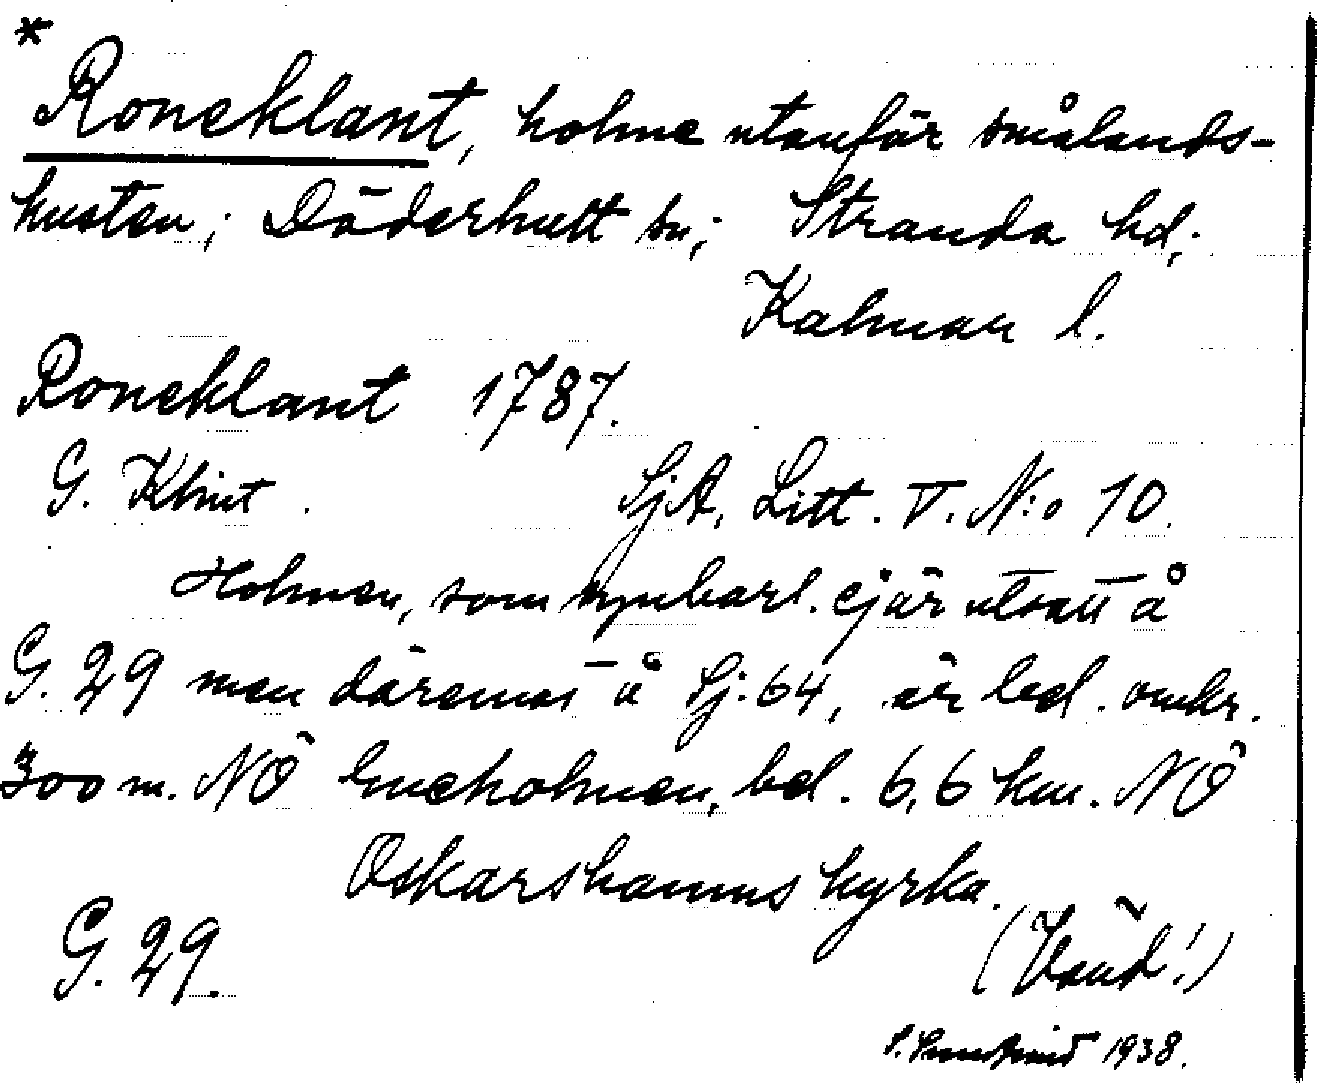 *
Roneklant, holme utanför smålands-
kusten; Döderhult sn; Stranda hd;
Kalmar l.
Roneklant 1787.
G. Klint. SjA, Litt. V. N:o 10.
Holmen, som uppenbarl. ej är utsatt å
G. 29 men däremot å Sj. 64, är bel. omkr.
300 m. NÖ Eneholmen, bel. 6,6 km. NÖ
Oskarshamns kyrka.
G. 29. (Vänd!)
1938.